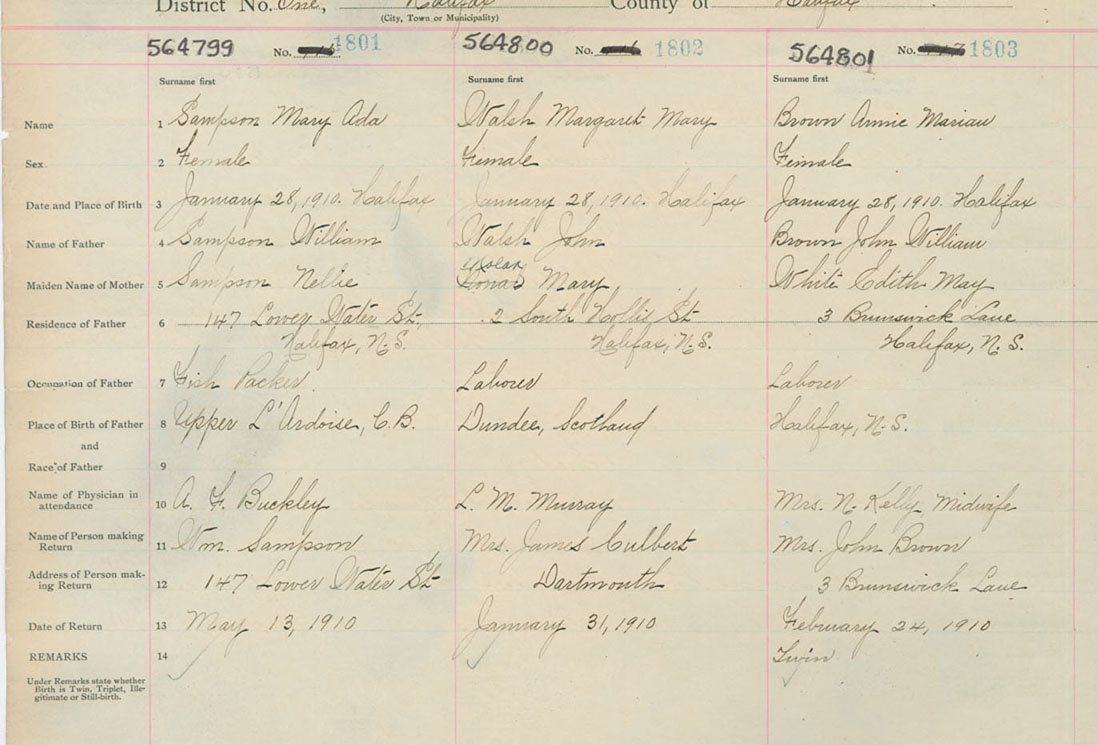 District No. One, Halifax County of Halifax
(City, Town or Municipality)
564799 No. 1801 564800 No. 1802 564801 No. 1803
Surname first Surname first Surname first
Name 1 Sampson Mary Ada Walsh Margaret Mary Brown Annie Marian
Sex 2 Female Female Female
Date and Place of Birth 3 January 28, 1910. Halifax January 28, 1910. Halifax January 28, 1910. Halifax
Name of Father 4 Sampson William Walsh John Brown John William
Maiden Name of Mother 5 Sampson Nellie Mary White Edith May
Residence of Father 6 147 Lower Water St. 2 South Hollis St 3 Brunswick Lane
Halifax, N.S. Halifax, N.S. Halifax, N.S.
Occupation of Father 7 Fish Packer. Laborer Laborer
Place of Birth of Father 8 Upper L'Ardoise, C.B. Dundee, Scotland Halifax, N.S.
and
Race of Father 9
Name of Physician in
attendance 10 A. F. Buckley L. M. Murray Mrs. N. Kelly Midwife
Name of Person making
Return 11 Wm. Sampson Mrs. James Culbert Mrs. John Brown
Address of Person mak-
ing Return 12 147 Lower Water St Dartmouth 3 Brunswick Lane
Date of Return 13 May 13, 1910 January 31, 1910 February 24, 1910
REMARKS 14 Twin
Under Remarks state whether
Birth is Twin, Triplet, Ille-
gitimate or Still-birth.